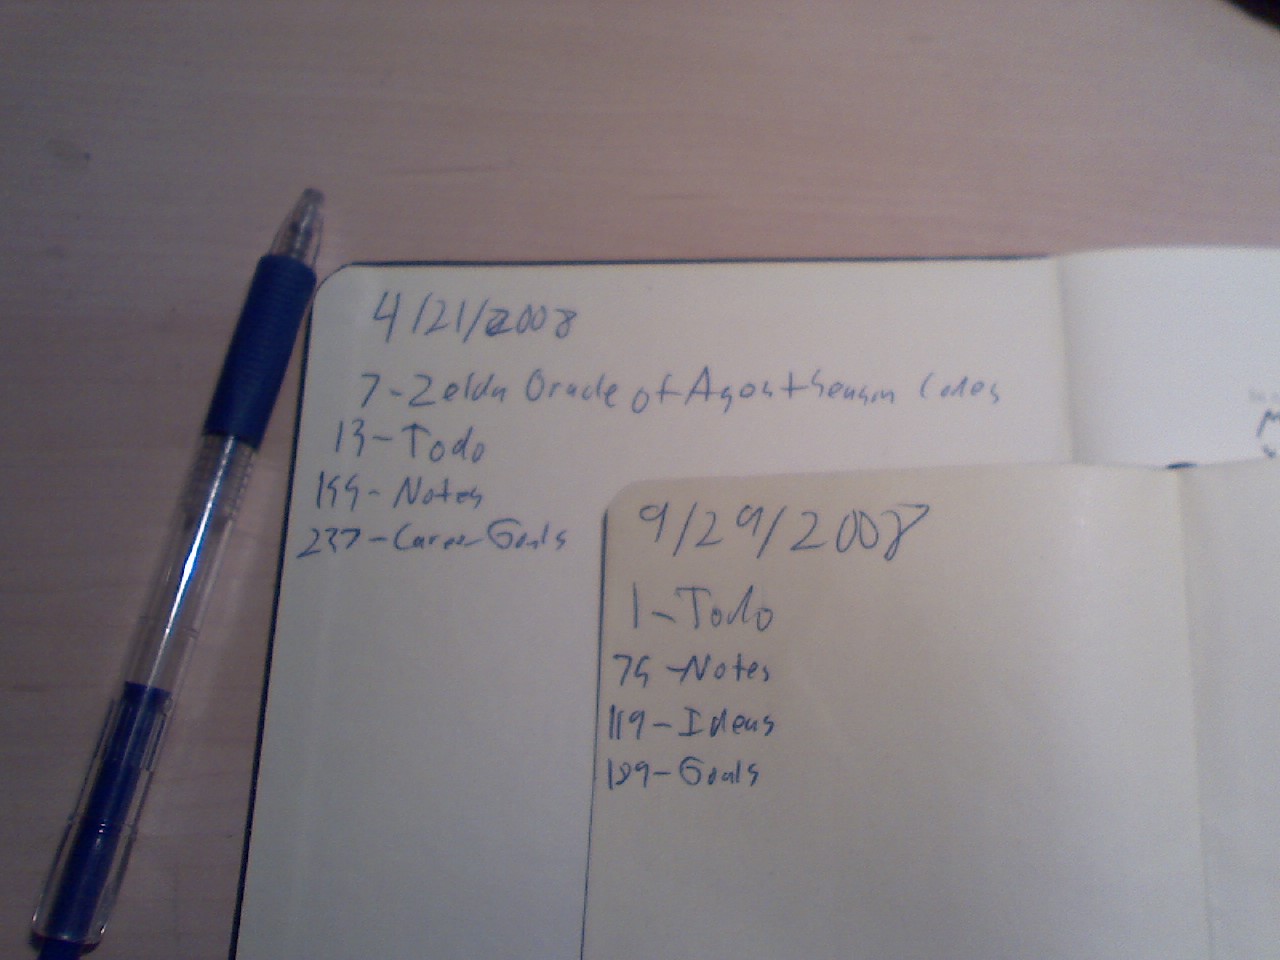 4/21/2008
7-Zelda Oracle of Ages + Season Codes
13-Todo
199-Notes
237-Career Goals
9/29/2008
1-Todo
75-Notes
119-Ideas
189-Goals